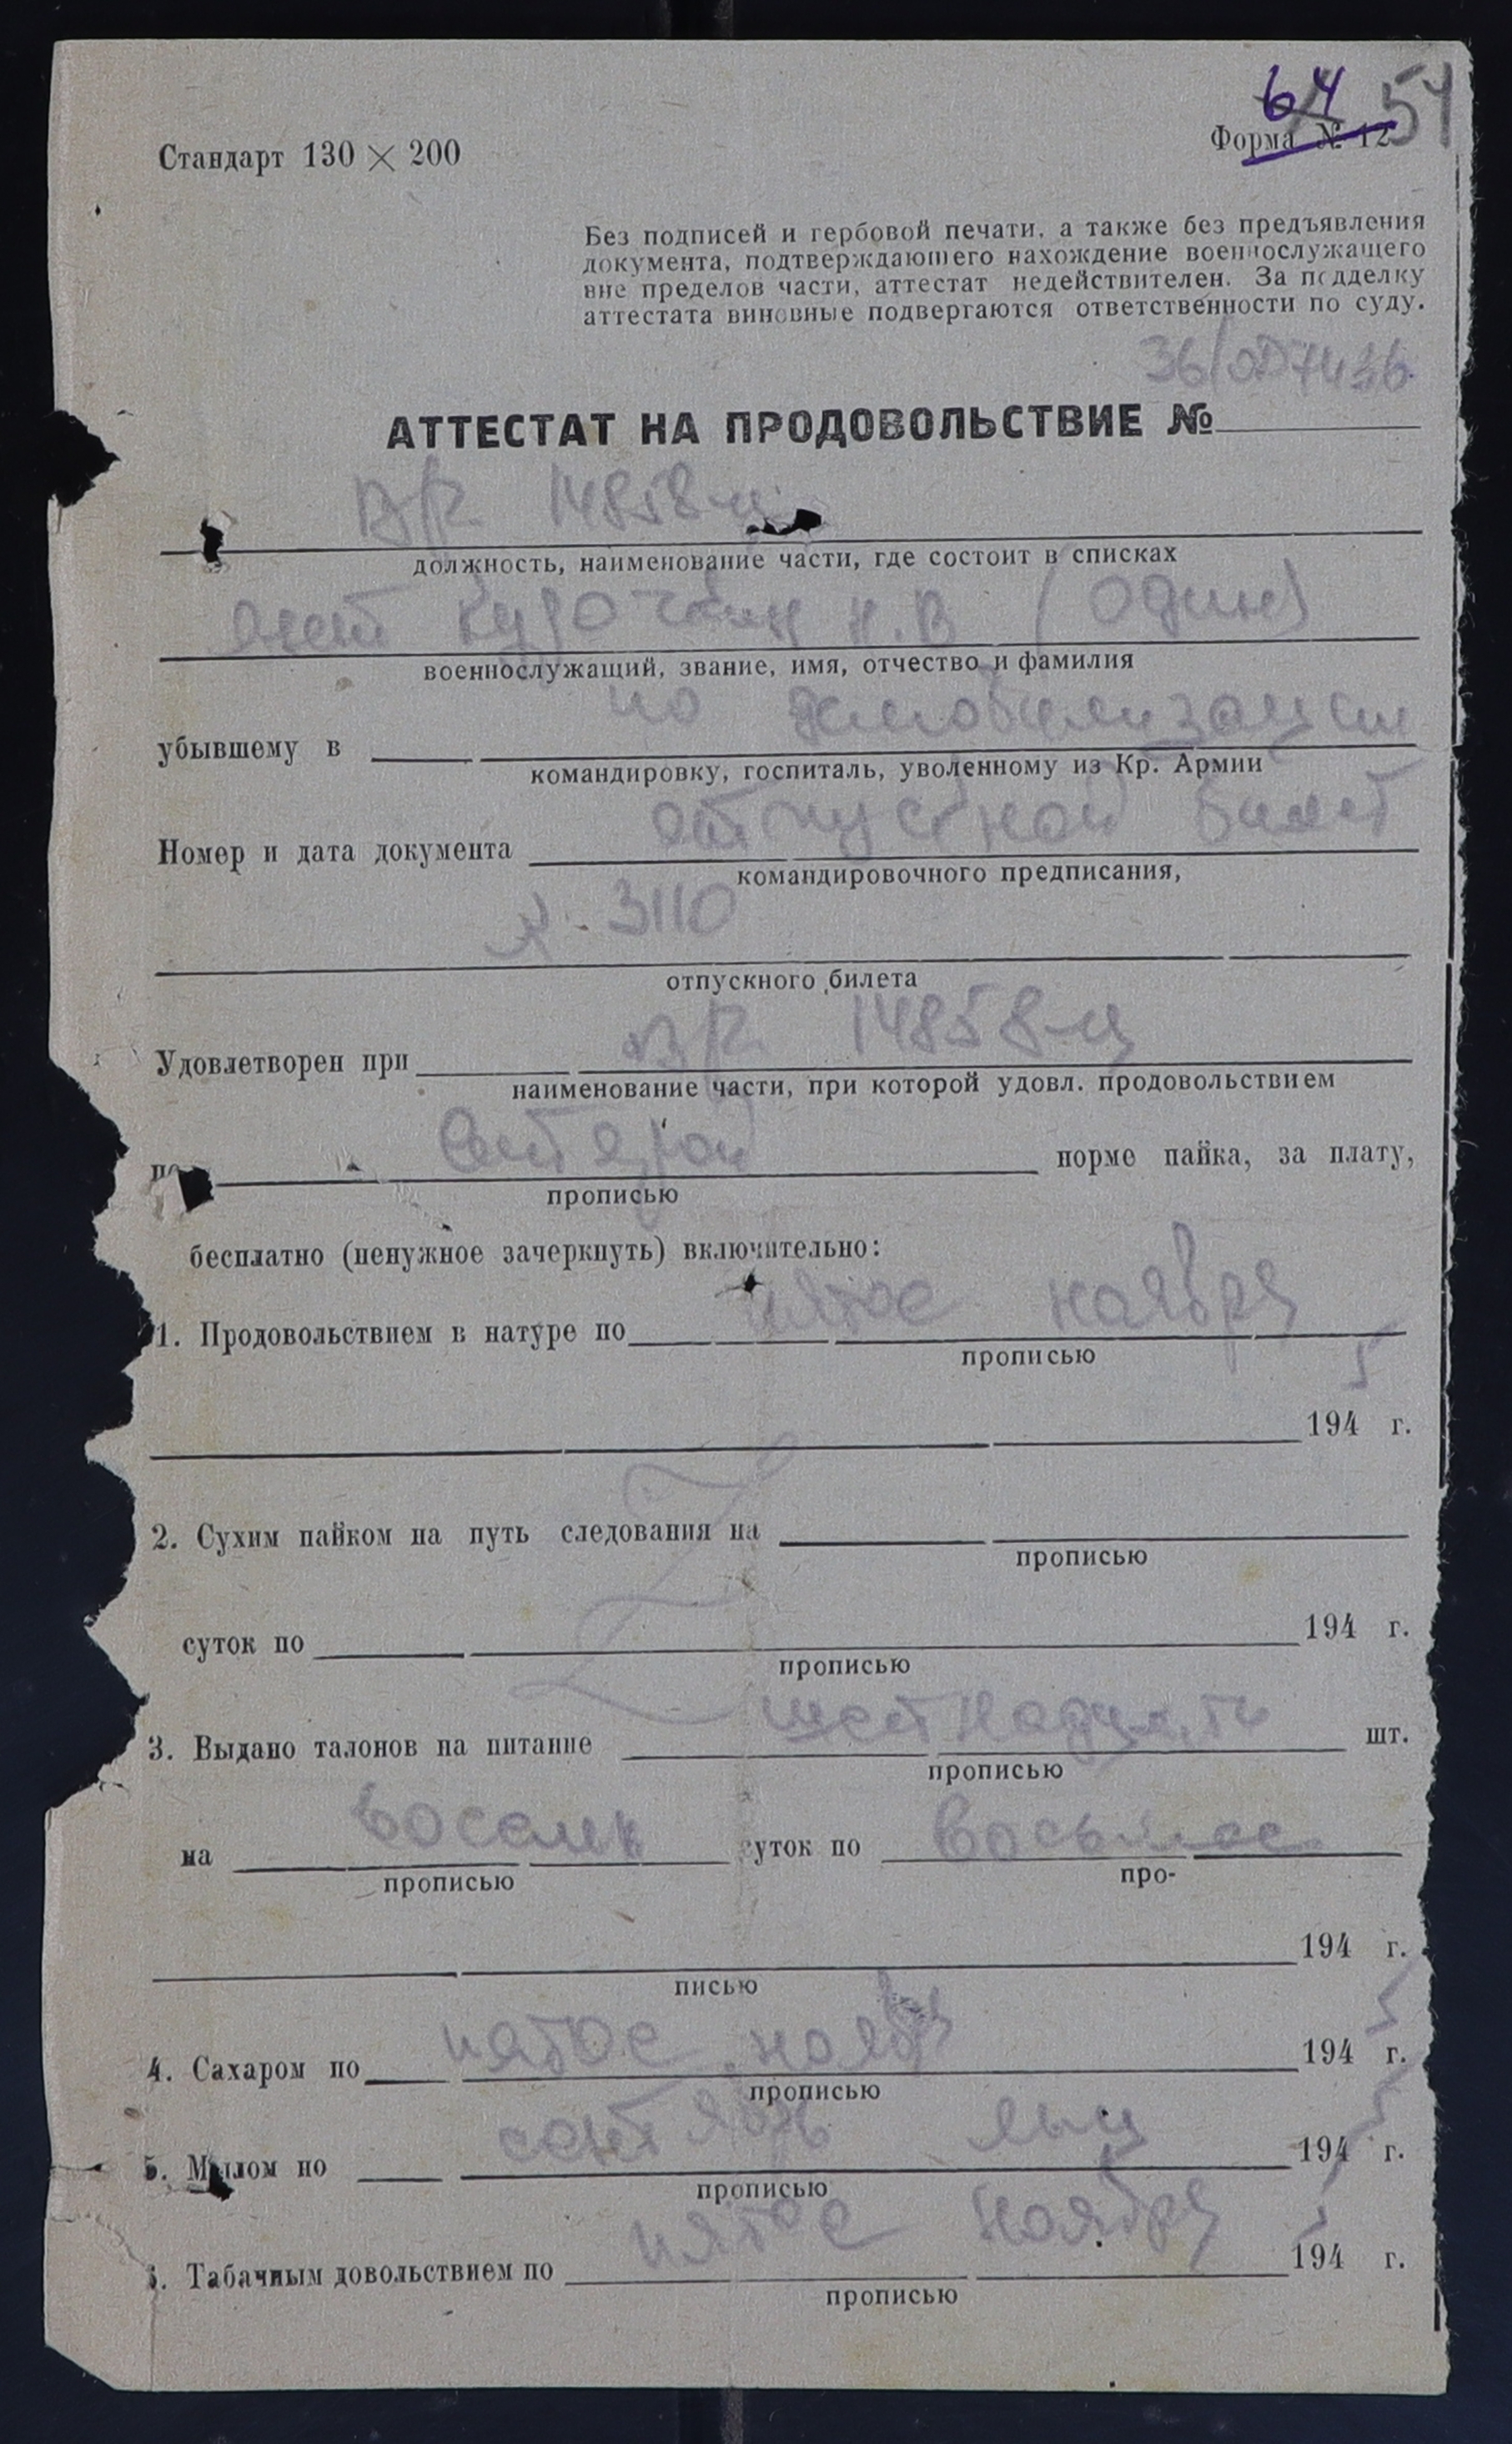 64 54
Стандарт 130 × 200
Форма № 12
Без подписей и гербовой печати, а также без предъявления
документа, подтверждающего нахождение военнослужащего
вне пределов части, аттестат недействителен. За подделку
аттестата виновные подвергаются ответственности по суду.
АТТЕСТАТ НА ПРОДОВОЛЬСТВИЕ №
14858-ц
должность, наименование части, где состоит в списках
Н. В (один)
военнослужащий, звание, имя, отчество и фамилия
по демобилизации
убывшему в
командировку, госпиталь, уволенному из Кр. Армии
Номер и дата документа отпускной билет
командировочного предписания,
№ 3110
отпускного билета
Удовлетворен при 14858-ц
наименование части, при которой удовл. продовольствием
по норме пайка, за плату,
прописью
бесплатно (ненужное зачеркнуть) включительно:
1. Продовольствием в натуре по пятое ноября
прописью
1945 г.
2. Сухим пайком на путь следования на
прописью
суток по 194 г.
прописью
3. Выдано талонов на питание шестнадцать шт.
прописью
на восемь суток по восьмое
прописью про-
194 г.
писью
4. Сахаром по пятое нояб 1945 г.
прописью
5. Мылом по сентябрь м-ц 1945 г.
прописью
6. Табачным довольствием по пятое ноября 1945 г.
прописью